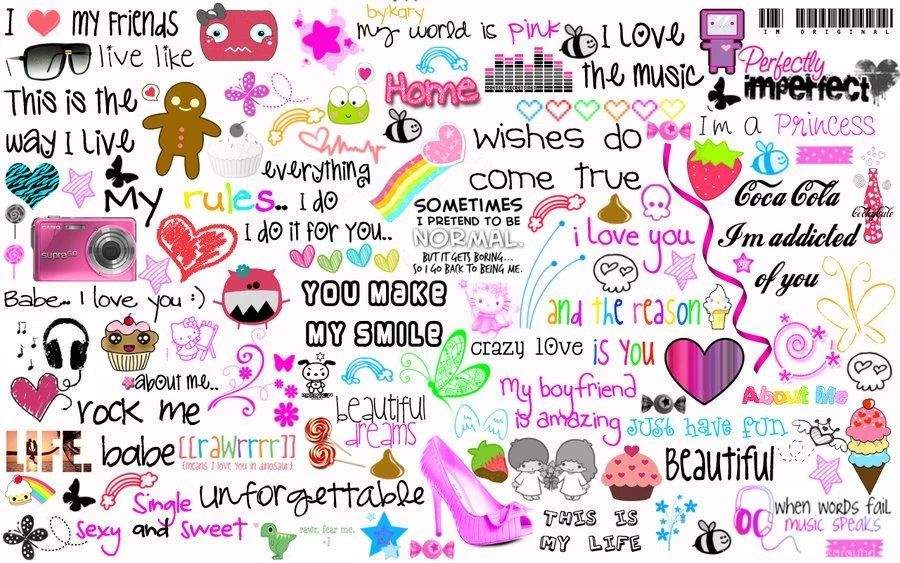 I my friends
by:kary
my world is pink
I love
the music
IM ORIGINAL
live like
This is the
way I live
Home
Perfectly
imperfect
wishes do
come true
I'm a Princess
everything
My rules.. I do
I do it for you..
SOMETIMES
I PRETEND TO BE
NORMAL.
BUT IT GETS BORING...
SO I GO BACK TO BEING ME.
i love you
Coca Cola
I'm addicted
of you
CASIO
Babe.. I love you :)
YOU MAKE
MY SMILE
and the reason
is you
crazy love
about me..
rock me
beautiful
dreams
my boyfriend
is amazing
About Me
just have fun
LIFE.
babe
[[rawrrrr]]
{means I love you in dinosaur}
Beautiful
Single
unforgettable
sexy and sweet
rawr. fear me.
THIS IS
MY LIFE
when words fail
music speaks